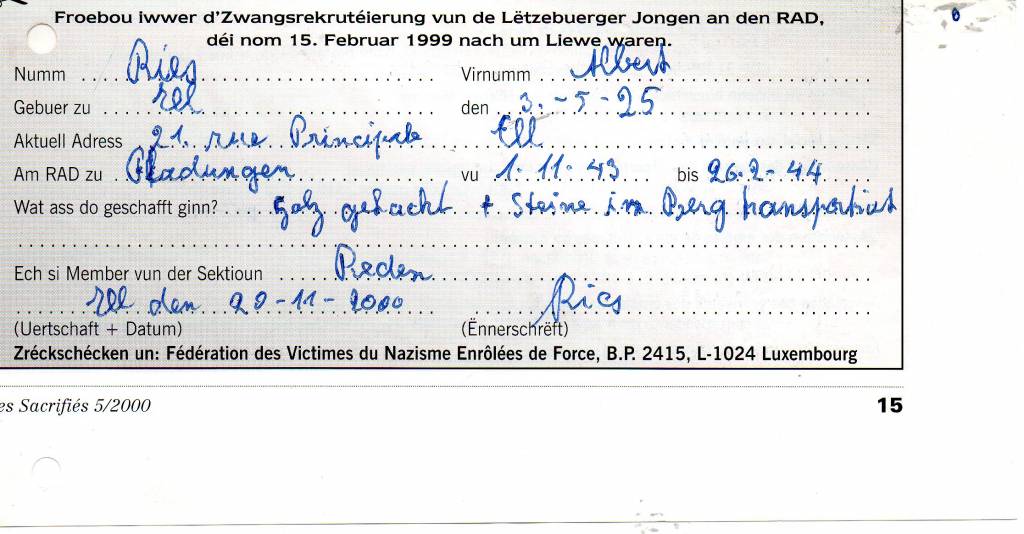 Froebou iwwer d'Zwangsrekrutéierung vun de Lëtzebuerger Jongen an den RAD,
déi nom 15. Februar 1999 nach um Liewe waren.
Numm Ries Virnumm Albert
Gebuer zu Ell den 3.-5-25
Aktuell Adress 21. rue Principale Ell
Am RAD zu Fladungen vu 1-11-43 bis 26.2-44
Wat ass do geschafft ginn? Holz gehackt + Steine im Berg transportiert
Ech si Member vun der Sektioun Reden
Ell den 29-11-2000 Ries
(Uertschaft + Datum) (Ënnerschrëft)
Zréckschécken un: Fédération des Victimes du Nazisme Enrôlées de Force, B.P. 2415, L-1024 Luxembourg
es Sacrifiés 5/2000 15